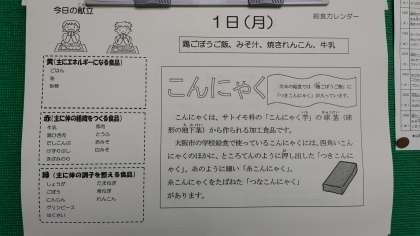 今日の献立
給食カレンダー
1日(月)
鶏ごぼうご飯、みそ汁、焼きれんこん、牛乳
黄(主にエネルギーになる食品)
ごはん
油
砂糖
赤(主に体の組織をつくる食品)
牛乳 鶏肉
とうふ
だしこんぶ 赤みそ
けずりぶし 白みそ
緑(主に体の調子を整える食品)
しょうが たまねぎ
ごぼう 青ねぎ
にんじん れんこん
グリンピース
はくさい
こんにゃく
今日の給食では「鶏ごぼうご飯」に
「つきこんにゃく」が入っています。
こんにゃくは、サトイモ科の「こんにゃく芋」の球茎(球
形の地下茎)から作られる加工食品です。
大阪市の学校給食で使っているこんにゃくには、四角いこん
にゃくのほかに、ところてんのように押し出した「つきこんに
ゃく」、糸のように細い「糸こんにゃく」、
糸こんにゃくをたばねた「つなこんにゃく」
があります。